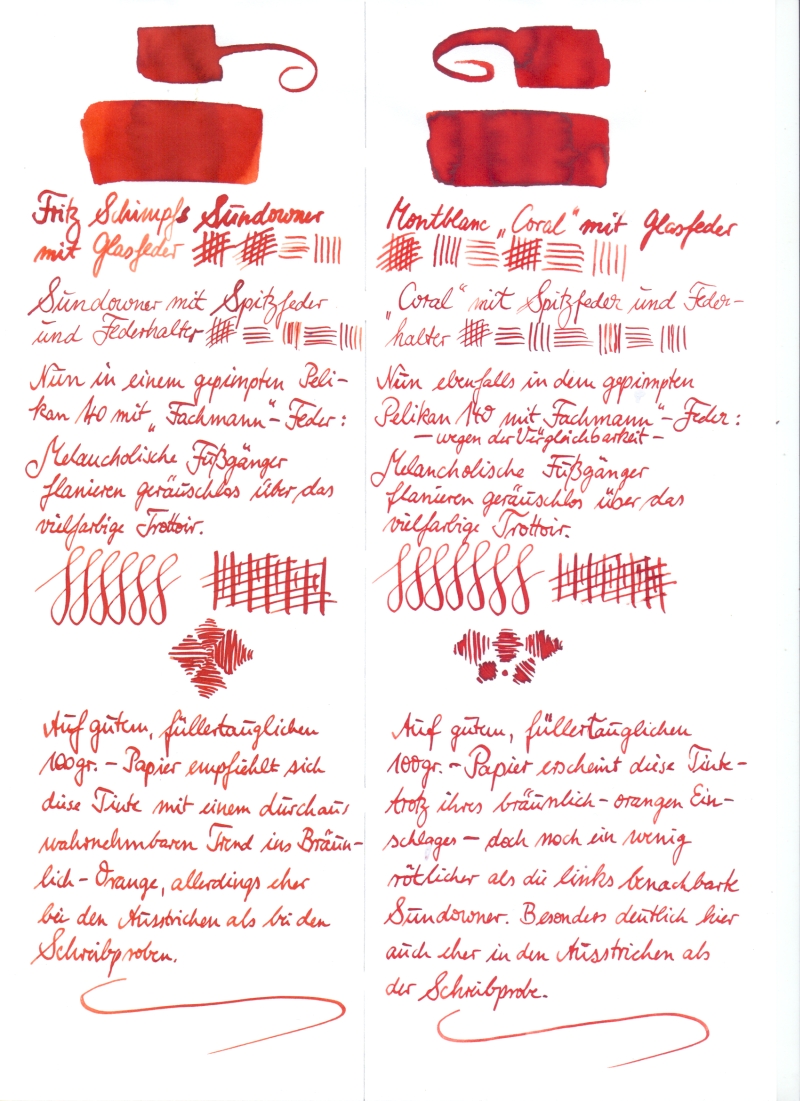 Fritz Schimpfs Sundowner
mit Glasfeder
Sundowner mit Spitzfeder
und Federhalter
Nun in einem gepimpten Peli-
kan 140 mit „Fachmann“-Feder:
Melancholische Fußgänger
flanieren geräuschlos über das
vielfarbige Trottoir.
Auf gutem, füllertauglichen
100gr.- Papier empfiehlt sich
diese Tinte mit einem durchaus
wahrnehmbaren Trend ins Bräun-
lich-Orange, allerdings eher
bei den Ausstrichen als bei den
Schreibproben.
Montblanc „Coral“ mit Glasfeder
„Coral“ mit Spitzfeder und Feder-
halter
Nun ebenfalls in dem gepimpten
Pelikan 140 mit „Fachmann“-Feder:
– wegen der Vergleichbarkeit –
Melancholische Fußgänger
flanieren geräuschlos über das
vielfarbige Trottoir.
Auf gutem, füllertauglichen
100gr.- Papier erscheint diese Tinte -
trotz ihres bräunlich-orangen Ein-
schlages – doch noch ein wenig
rötlicher als die links benachbarte
Sundowner. Besonders deutlich hier
auch eher in den Ausstrichen als
der Schreibprobe.